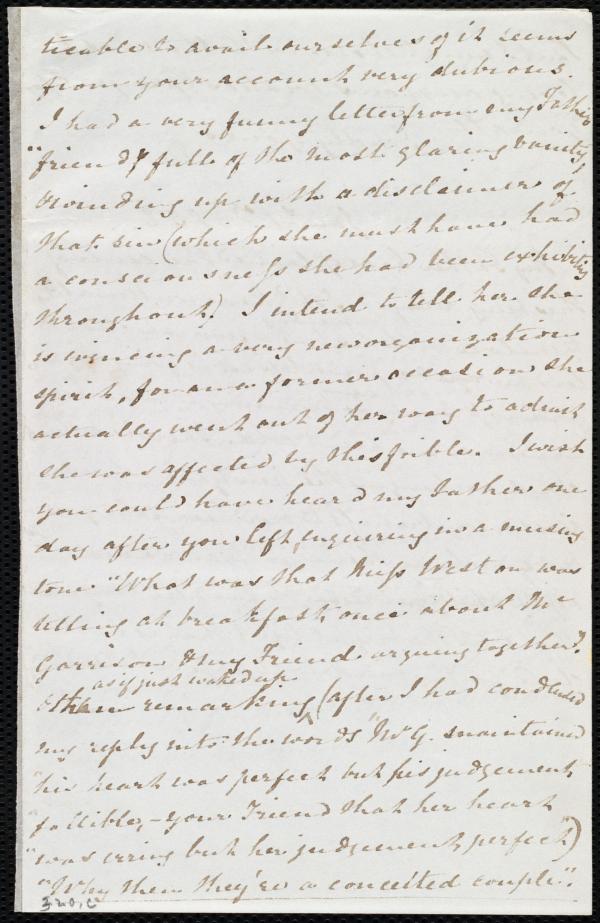 ticable to avail ourselves of it seems
from your account very dubious.
I had a very funny letter from my Father's
"friend", full of the most glaring vanity,
& winding up with a disclaimer of
that sin (which she must have had
a consciousness she had been exhibiting
throughout). I intend to tell her she
is evincing a very new organization
spirit, for on a former occasion she
actually went out of her way to admit
she was affected by this foible. I wish
you could have heard my Father one
day after you left, enquiring in a musing
tone "What was that Miss Weston was
telling at breakfast once about Mr
Garrison & my Friend arguing together?"
as if just waked up
& then remarking (after I had condensed
my reply into the words "Mr G. maintained
"his heart was perfect but his judgement
"fallible, – your Friend that her heart
"was erring but her judgement perfect")
"Why then they're a conceited couple".
320, C